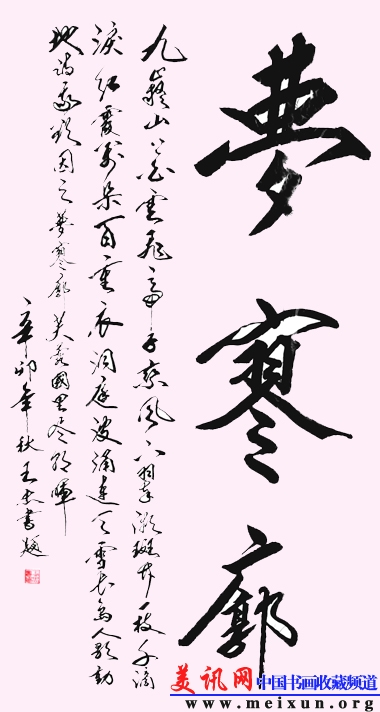 夢寥廓
九嶷山上白雲飛帝子乘風下翠微斑竹一枝千滴
淚紅霞萬朵百重衣洞庭波涌連天雪長島人歌動
地詩我欲因之夢寥廓芙蓉國里盡朝暉
辛卯年秋王書題
美讯网 中国书画收藏频道
www.meixun.org